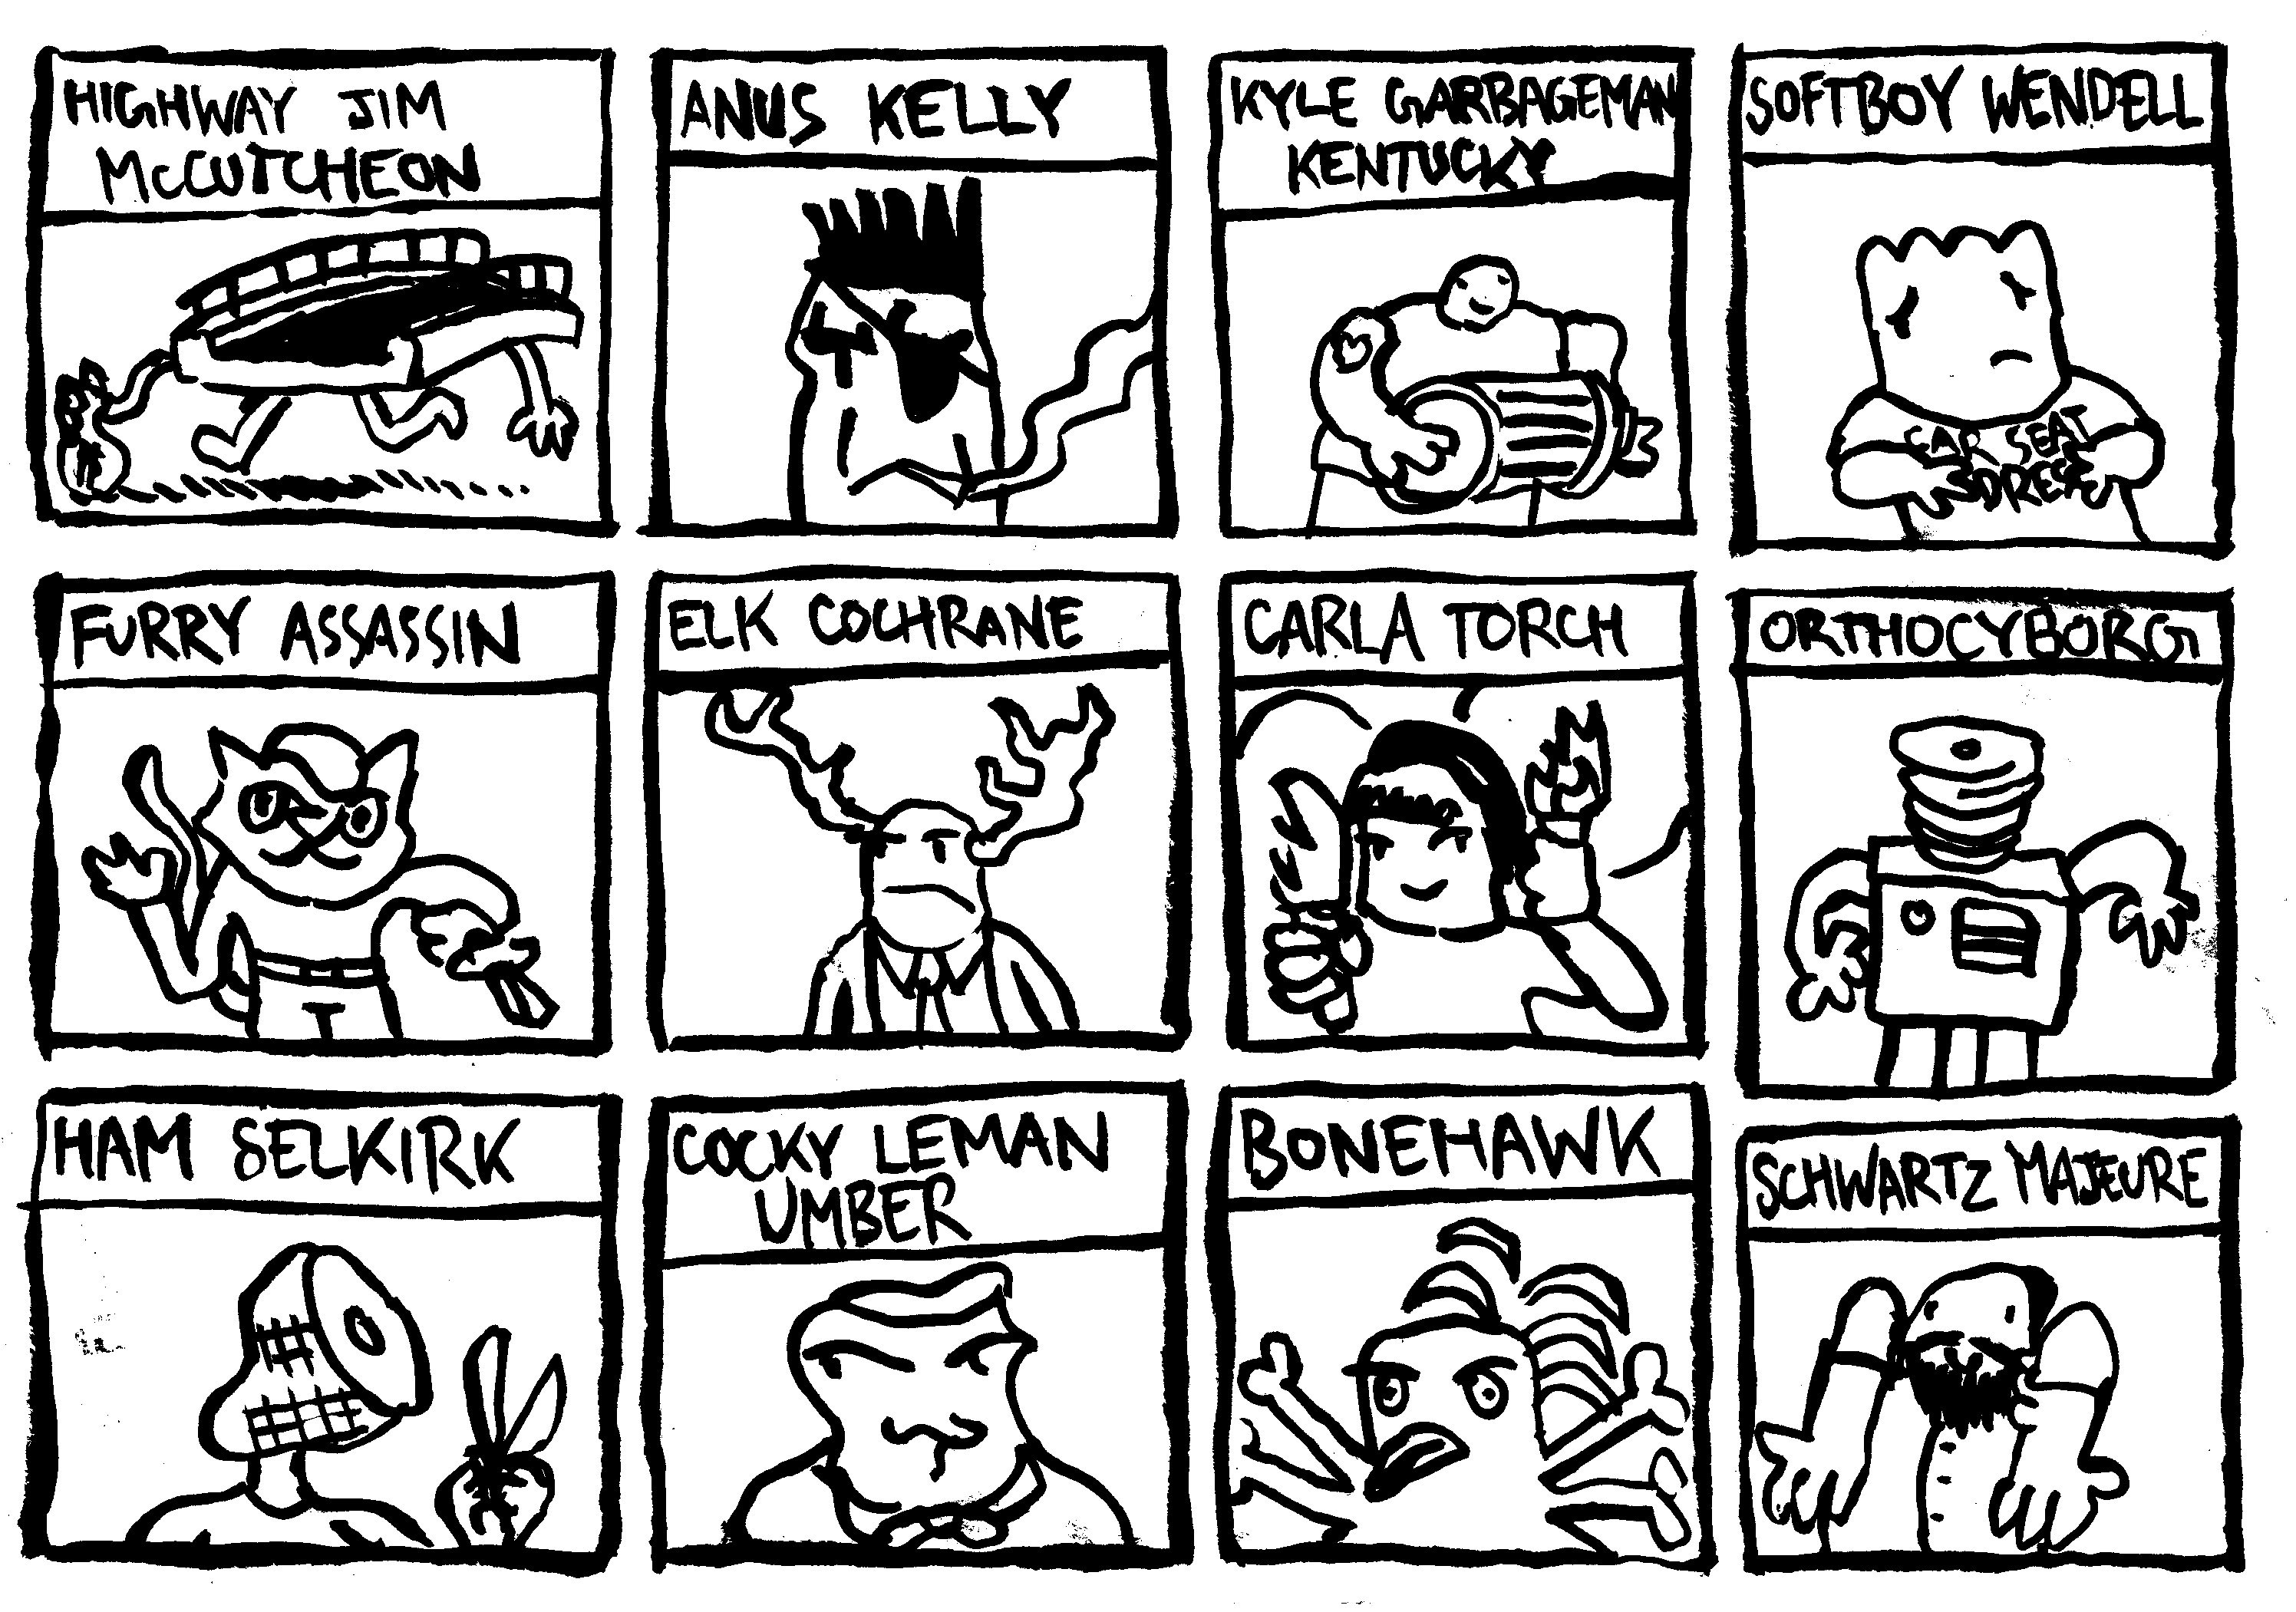 HIGHWAY JIM
McCUTCHEON
ANUS KELLY
KYLE GARBAGEMAN
KENTUCKY
SOFTBOY WENDELL
CAR SEAT
FURRY ASSASSIN
ELK COCHRANE
CARLA TORCH
ORTHOCYBORG
HAM SELKIRK
COCKY LEMAN
UMBER
BONEHAWK
SCHWARTZ MAJEURE